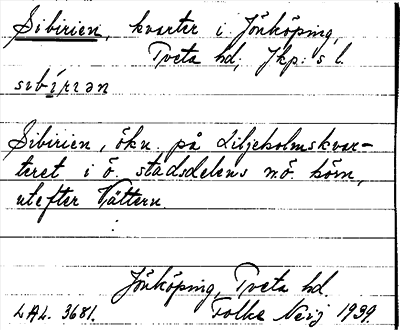 Sibirien, kvarter i Jönköping,
Tveta hd; Jkp: s l.
sɩbírɩən
Sibirien, ökn. på Liljeholmskvar-
teret i ö. stadsdelens n.ö. hörn,
utefter Vättern.
Jönköping, Tveta hd.
LAL. 3681. Folke Neij 1939.